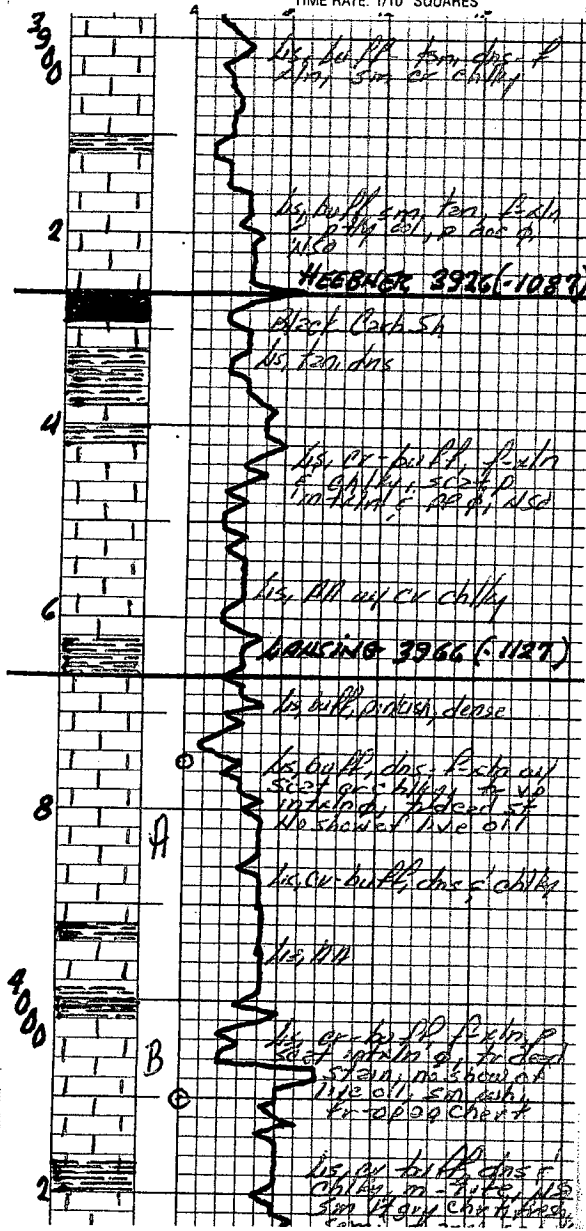 TIME RATE: 1/10" SQUARES
3900
Ls, buff tan, dns-f
xln, sm cr chlky
2
Ls, buff sm, tan, f-xln
NSO
HEEBNER 3926 (-1087)
Black Carb Sh
Ls, tan, dns
4
Ls, cr-buff, f-xln
c chlky, scat p
intxln c PP φ, NSO
Ls, AA w/ cr chlky
6
LANSING 3966 (-1127)
Ls, buff, pinkish, dense
Ls, buff, dns-f-xln w/
scat chlky, tr vp
intxln φ, tr dead st
No show of live oil
8
A
Ls, cr-buff, dns c chlky
Ls, AA
4000
Ls, cr-buff, f-xln, p
scat intxln φ, tr dead
stain, no show of
live oil, sm wh,
tr-opaq chert
B
Ls, cr-buff, dns c
chlky, NS
2
sm lt gry chert, fresh